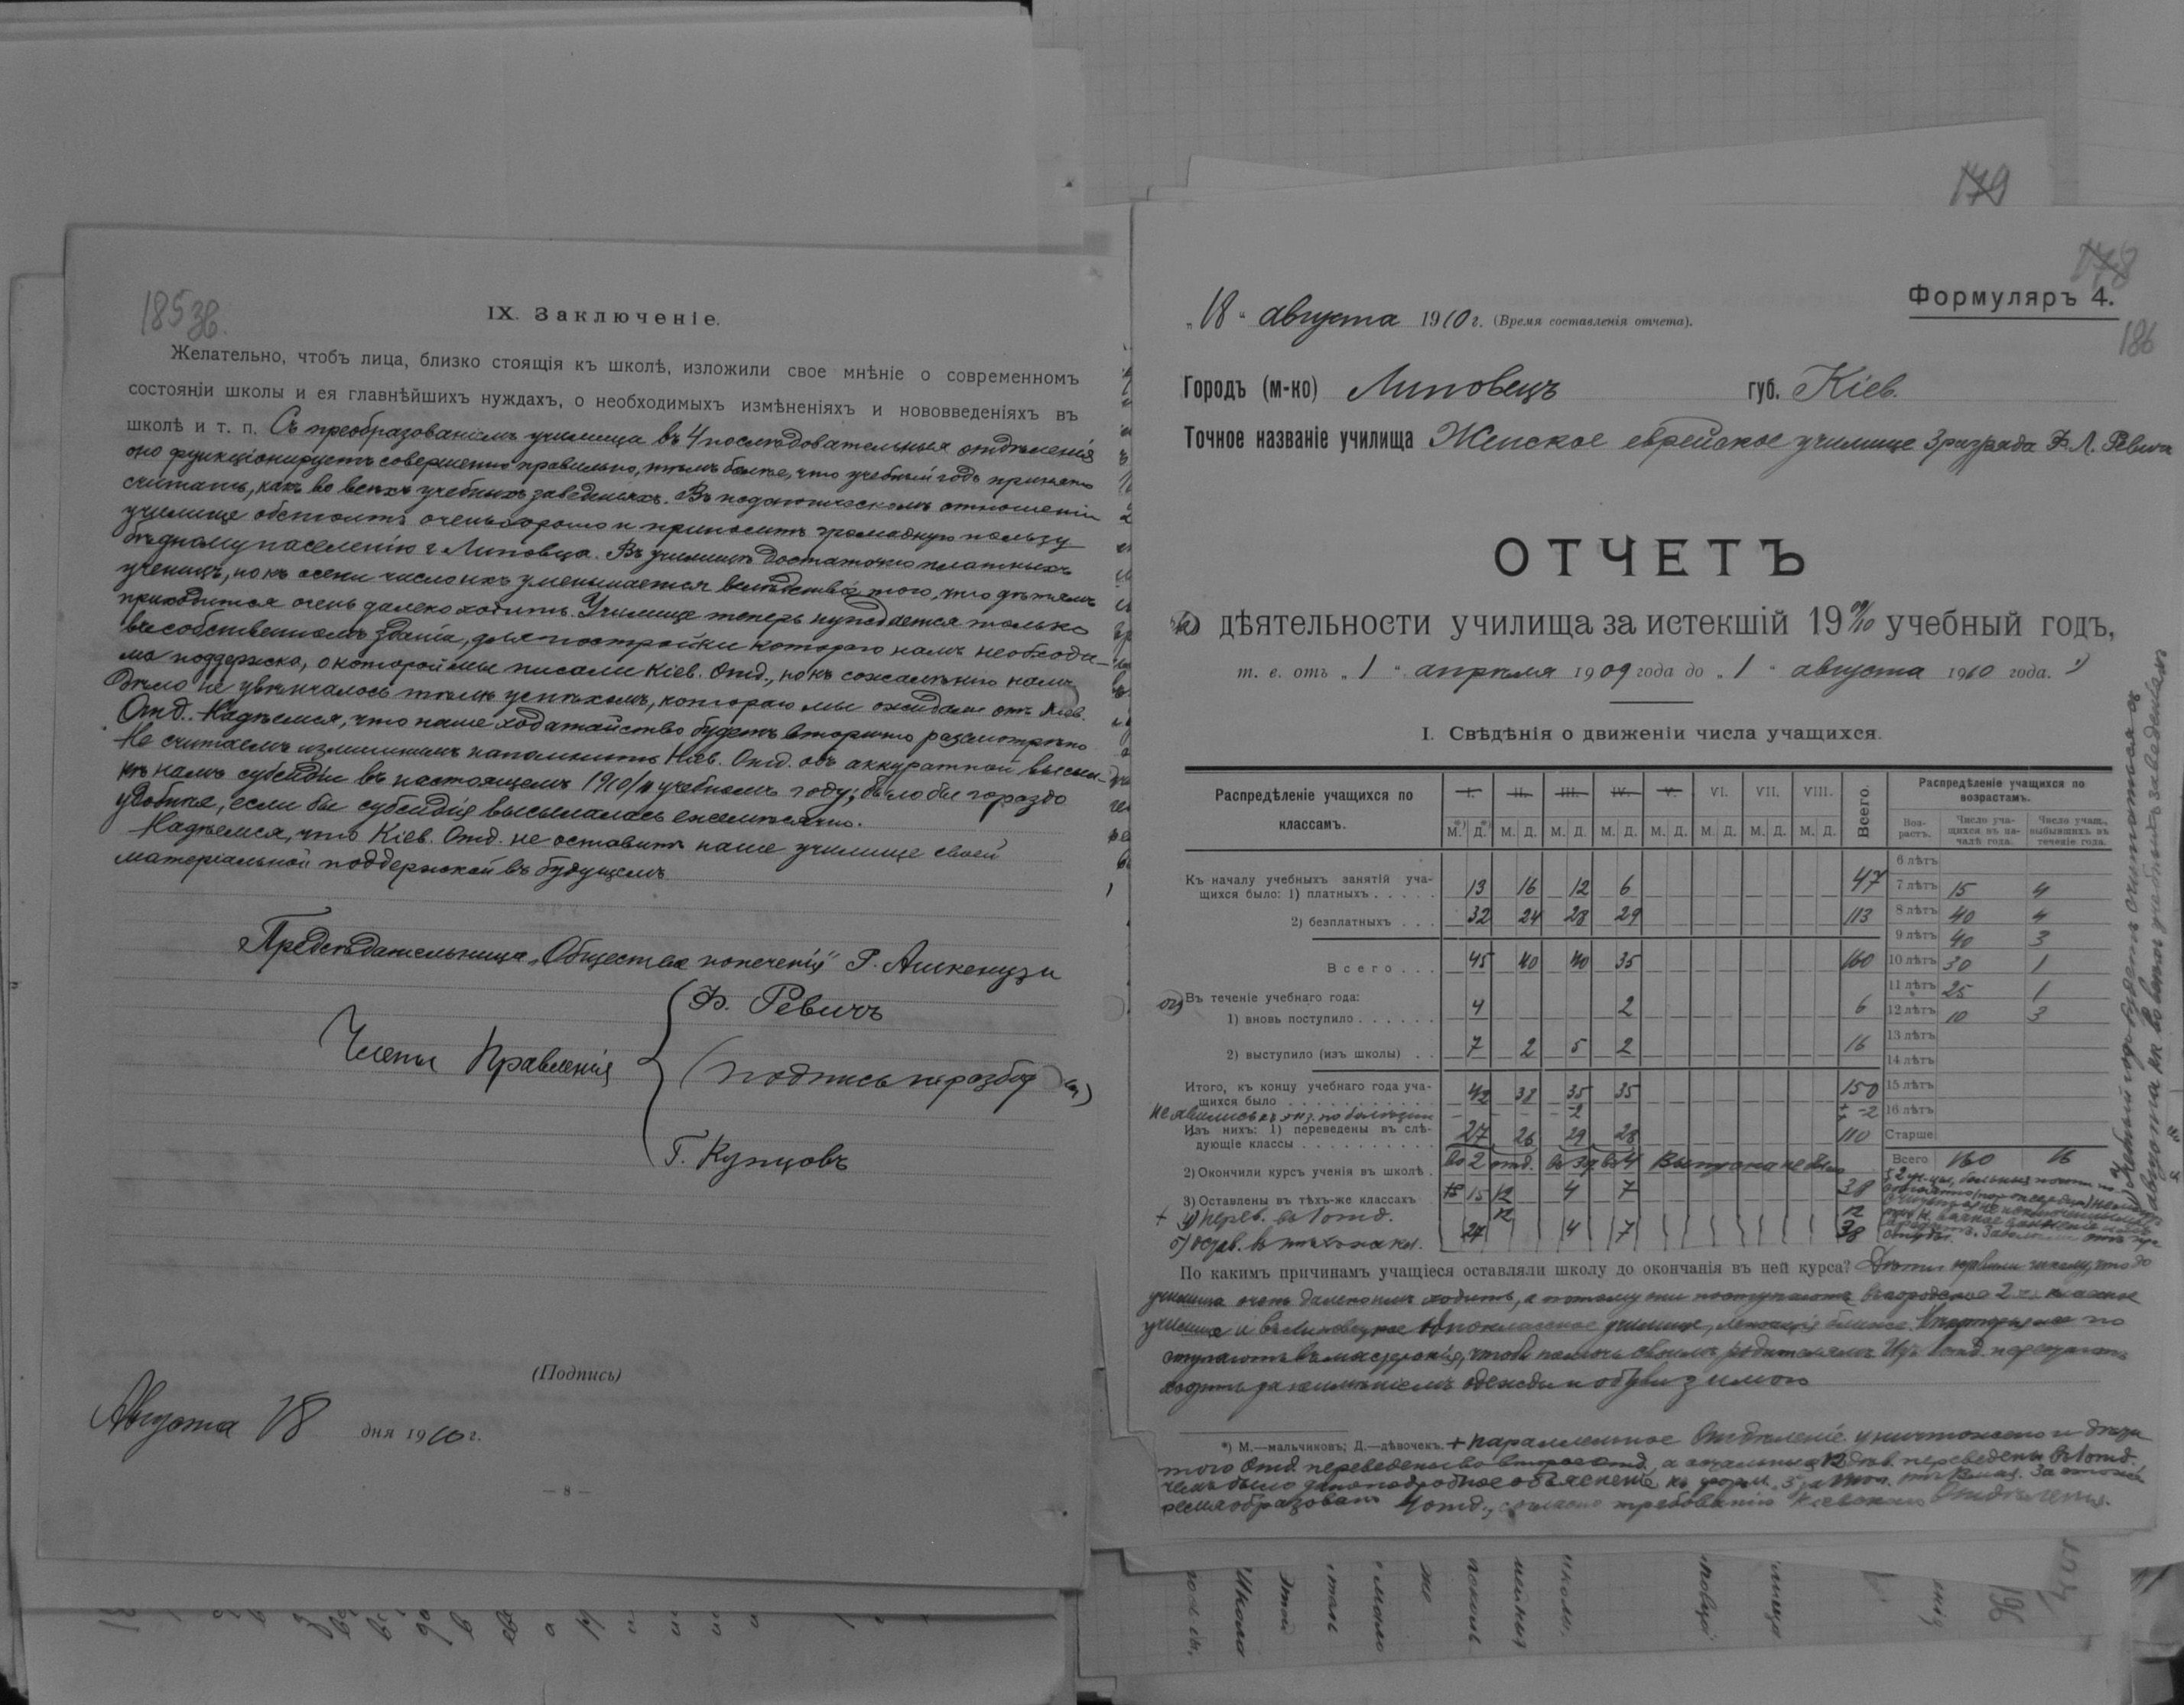 185 об.
IX. Заключеніе.
Желательно, чтобъ лица, близко стоящія къ школѣ, изложили свое мнѣніе о современномъ
состояніи школы и ея главнѣйшихъ нуждахъ, о необходимыхъ измѣненіяхъ и нововведеніяхъ въ
школѣ и т. п. Съ преобразованіемъ училища въ 4 последовательныя отдѣленія
оно функціонируетъ совершенно правильно, тѣмъ более, что учебный годъ принято
считать, какъ во всехъ учебныхъ заведеніяхъ. Въ педагогическомъ отношеніи
училище обстоитъ очень хорошо и приноситъ громадную пользу
бѣдному населенію г. Липовца. Въ училищѣ достаточно платныхъ
ученицъ, но къ осени число ихъ уменьшается вслѣдствіе того, что дѣтямъ
приходится очень далеко ходить. Училище теперь нуждается только
въ собственномъ зданіи, для постройки котораго намъ необходи-
ма поддержка, о которой мы писали Кіев. Отд., но къ сожалѣнію наше
дѣло не увѣнчалось тѣмъ успѣхомъ, котораго мы ожидали отъ Кіев.
Отд. Надѣемся, что наше ходатайство будетъ вторично разсмотрѣно
Не считаемъ излишнимъ напомнить Кіев. Отд. объ аккуратной высыл-
кѣ намъ субсидіи въ настоящемъ 1910/11 учебномъ году; было бы гораздо
удобнѣе, если бы субсидія высылалась ежемѣсячно.
Надѣемся, что Кіев. Отд. не оставитъ наше училище своей
матеріальной поддержкой въ будущемъ
Предсѣдательница „Общества попеченія" Р. Ашкенузи
Члены Правленія
Ф. Ревичъ
(подпись неразбор.)
Г. Купцовъ
(Подпись)
Августа 18 дня 1910 г.
— 8 —
179
178
Формуляръ 4.
186
„18" августа 1910 г. (Время составленія отчета).
Городъ (м-ко) Липовецъ губ. Кіев.
Точное названіе училища Женское еврейское училище 3 разряда Ф. Л. Ревича
ОТЧЕТЪ
о дѣятельности училища за истекшій 19 09/10 учебный годъ,
т. е. отъ „1" апрѣля 1909 года до „1" августа 1910 года. 1)
I. Свѣдѣнія о движеніи числа учащихся.
Распредѣленіе учащихся по классамъ. I. II. III. IV. V. VI. VII. VIII. Всего.
М.*) Д.*) М. Д. М. Д. М. Д. М. Д. М. Д. М. Д. М. Д.
Къ началу учебныхъ занятій уча-
щихся было: 1) платныхъ 13 16 12 6 47
2) безплатныхъ 32 24 28 29 113
Всего 45 40 40 35 160
Въ теченіе учебнаго года:
1) вновь поступило 4 2 6
2) выступило (изъ школы) 7 2 5 2 16
Итого, къ концу учебнаго года уча-
щихся было 42 38 35 35 150
не явились къ экз. по болезни - - - -2 -2
Изъ нихъ: 1) переведены въ слѣ-
дующіе классы 27 26 29 28 110
2) Окончили курсъ ученія въ школѣ во 2 отд. въ 3 въ 4 выпуска не было
3) Оставлены въ тѣхъ-же классахъ 15 12 4 7 38
+ 4) перев. въ 1 отд. 12 12
5) остав. въ тѣхъ же кл. 27 4 7 38
Распредѣленіе учащихся по возрастамъ.
Воз-растъ. Число уча-щихся въ на-чалѣ года. Число учащ., выбывшихъ въ теченіе года.
6 лѣтъ
7 лѣтъ 15 4
8 лѣтъ 40 4
9 лѣтъ 40 3
10 лѣтъ 30 1
11 лѣтъ 25 1
12 лѣтъ 10 3
13 лѣтъ
14 лѣтъ
15 лѣтъ
16 лѣтъ
Старше
Всего 160 16
1) Учебный годъ будетъ считаться съ
августа какъ во всехъ учебныхъ заведеніяхъ
По какимъ причинамъ учащіеся оставляли школу до окончанія въ ней курса?
училища очень далеко имъ ходить, а потому они поступаютъ въ городское 2-хъ классное
училище и въ Липовецкое одноклассное училище, лежащія ближе. Некоторыя по
ступаютъ въ мастерскія, чтобы помочь своимъ родителямъ. Изъ 1 отд. перестаютъ
ходить за неимѣніемъ одежды и обуви зимою
*) М.—мальчиковъ; Д.—дѣвочекъ. + параллельное Отделеніе уничтожено и
того Отд. переведены во второе отд., а остальныя 12 дѣв. переведены въ 1 отд.
чемъ было дано подробное объясненіе къ форм. 5
образовано 4 отд., согласно требованію Кіевскаго Отдѣленія.